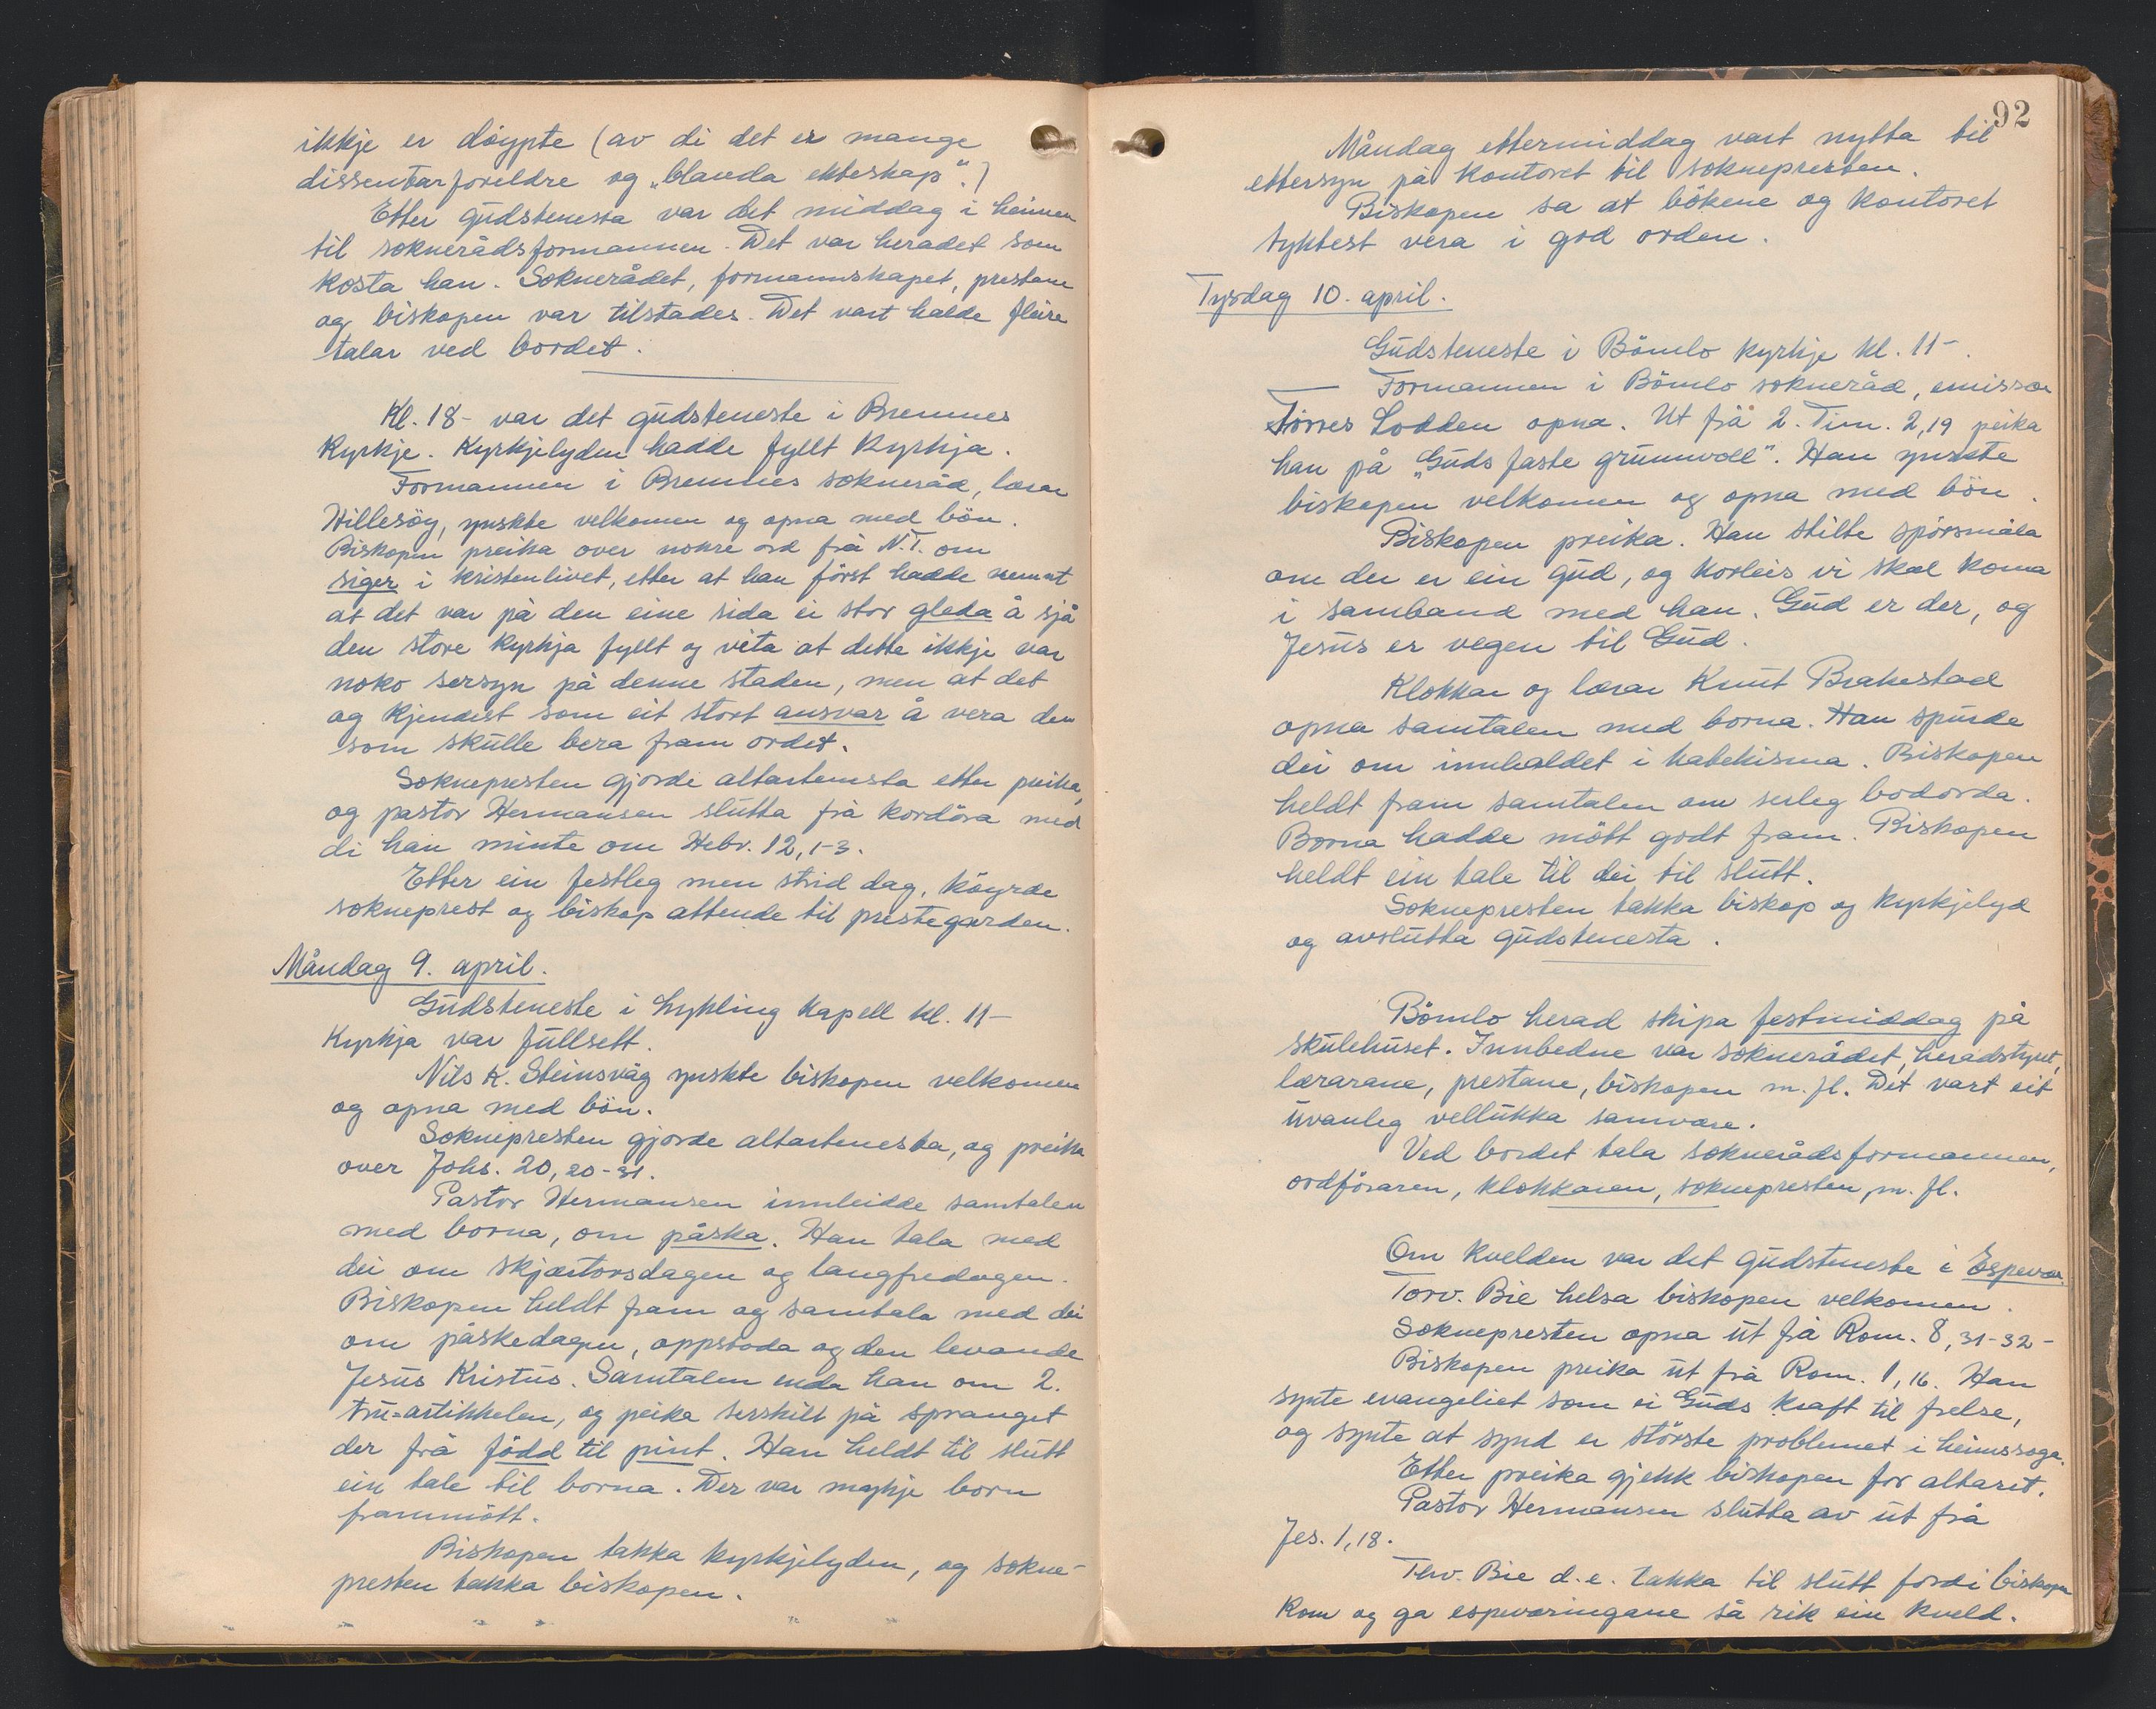 ikkje er döypte (av di det er mange
dissentarforeldre og „blanda ekteskap".)
Etter gudstenesta var det middag i heimen
til soknerådsformannen. Det var heradet som
kosta han. Soknerådet, formannskapet, prestane
og biskopen var tilstades. Det vart halde fleire
talar ved bordet.
Kl. 18- var det gudsteneste i Bremnes
Kyrkje. Kyrkjelyden hadde fyllt Kyrkja.
Formannen i Bremnes sokneråd, lærar
Hillesöy, ynskte velkomen og opna med bön.
Biskopen preika over nokre ord frå N.T. om
siger i kristenlivet, etter at han först hadde nemnt
at det var på den eine sida ei stor gleda å sjå
den store kyrkja fyllt og vita at dette ikkje var
noko sersyn på denne staden, men at det
og kjendest som eit stort ansvar å vera den
som skulle bera fram ordet.
Soknepresten gjorde altartenesta etter preika,
og pastor Hermansen slutta frå kordöra med
di han minte om Hebr. 12, 1-3.
Etter ein festleg men strid dag, köyrde
sokneprest og biskop attende til prestegarden.
Måndag 9. april.
Gudsteneste i Lykling Kapell kl. 11-
Kyrkja var fullsett.
Nils K. Steinsvåg ynskte biskopen velkomen
og opna med bön.
Soknepresten gjorde altartenesta, og preika
over Johs. 20, 20-31.
Pastor Hermansen innleidde samtalen
med borna, om påska. Han tala med
dei om skjærtorsdagen og langfredagen.
Biskopen heldt fram og samtala med dei
om påskedagen, oppstoda og den levande
Jesus Kristus. Samtalen enda han om 2.
tru=artikkelen, og peika serskilt på spranget
der frå född til pint. Han heldt til slutt
ein tale til borna. Der var mykje born
frammött.
Biskopen takka kyrkjelyden, og sokne-
presten takka biskopen.
92
Måndag ettermiddag vart nytta til
ettersyn på kontoret til soknepresten.
Biskopen sa at bökene og kontoret
tyktest vera i god orden.
Tysdag 10. april.
Gudsteneste i Bömlo kyrkje kl. 11-.
Formannen i Bömlo sokneråd, emissær
Törres Lodden opna. Ut frå 2. Tim. 2,19 peika
han på „Guds faste grunnvoll". Han ynskte
biskopen velkomen og opna med bön.
Biskopen preika. Han stilte spörsmåla
om der er ein Gud, og korleis vi skal koma
i samband med han. Gud er der, og
Jesus er vegen til Gud.
Klokkar og lærar Knut Brakestad
opna samtalen med borna. Han spurde
dei om innhaldet i katekisma. Biskopen
heldt fram samtalen om serleg bodorda.
Borna hadde mött godt fram. Biskopen
heldt ein tale til dei til slutt.
Soknepresten takka biskop og kyrkjelyd
og avslutta gudstenesta.
Bömlo herad skipa festmiddag på
skulehuset. Innbedne var soknerådet, heradstyret,
lærarane, prestane, biskopen m.fl. Det vart eit
uvanleg vellukka samvære.
Ved bordet tala soknerådsformannen,
ordföraren, klokkaren, soknepresten, m.fl.
Om kvelden var det gudsteneste i Espevær.
Torv. Bie helsa biskopen velkomen.
Soknepresten opna ut frå Rom. 8, 31-32-
Biskopen preika ut frå Rom. 1, 16. Han
synte evangeliet som ei Guds kraft til frelse,
og synte at synd er störste problemet i heimssoga.
Etter preika gjekk biskopen for altaret.
Pastor Hermansen slutta av ut frå
Jes. 1, 18.
Thv. Bie d.e. takka til slutt fordi biskopen
kom og ga espeværingane så rik ein kveld.